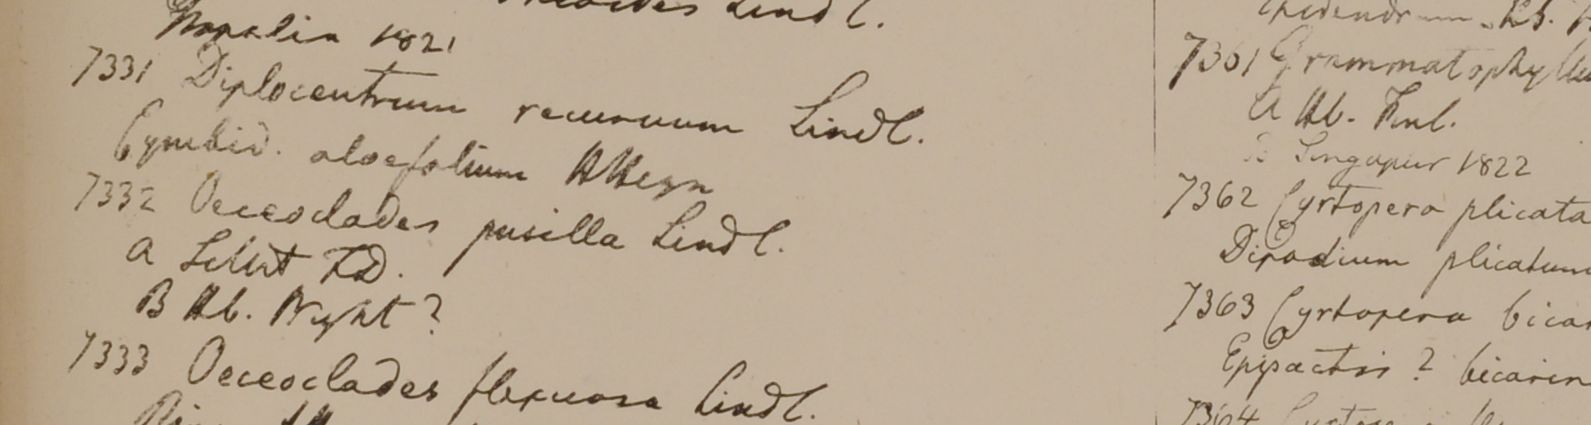 Lindl.
Napalia 1821
7331 Diplocentrum recurvum Lindl.
Cymbid. aloefolium HHeyn
7332 Oeceoclades pusilla Lindl.
a Silhet FD.
B Hb. Wight ?
7333 Oeceoclades flexuosa Lindl.
7361 Grammatophyllu
a Hb. Finl.
B Singapur 1822
7362 Cyrtopera plicata
Dipodium plicatum
7363 Cyrtopera bicar
Epipactis ? bicarin
7364